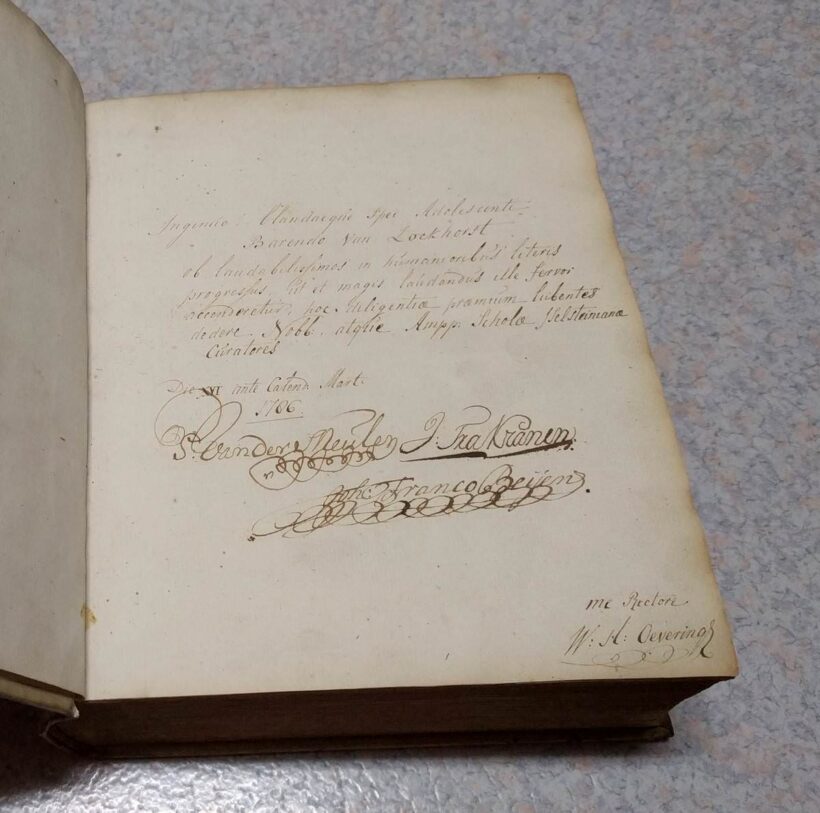 Ingenio Blandaeque Spei Adolescenti
Barendo Van Lockhorst
ob laudabilissimos in humanioribus literis
progressus, ut et magis laudandus ille fervor
accenderetur, hoc diligentiæ præmium lubentes
dedere. Nobb. atque Ampp. Scholæ Jselsteinanæ
Curatores
Die XVI ante Calend. Mart.
1786.
P. van der Meulen J: Kranen.
Joh: Franco Beyen.
me Rectore
W: H: Oevering